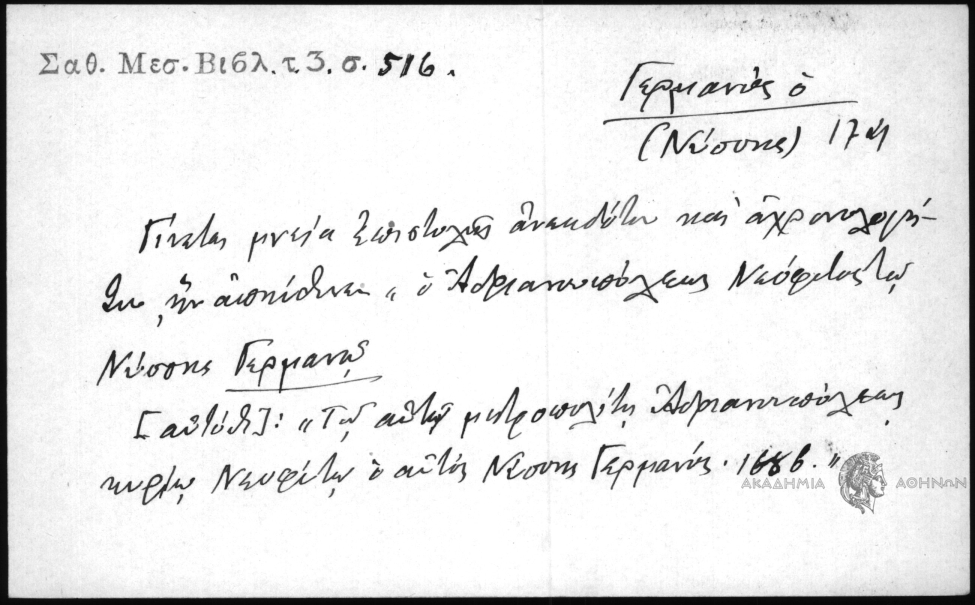 Σαθ. Μεσ. Βιβλ. τ. 3. σ. 516.
Γερμανός ὁ
(Νύσσης) 17ος
Γίνεται μνεία ἐπιστολῆς ἀνεκδότου καὶ ἀχρονολογή-
του, ἣν ἀπηύθυνεν "ὁ Ἀδριανουπόλεως Νεόφυτος τῷ
Νύσσης Γερμανῷ
[αὐτόθι]: "Τῷ αὐτῷ μητροπολίτῃ Ἀδριανουπόλεως
κυρίῳ Νεοφύτῳ ὁ αὐτὸς Νύσσης Γερμανός. 1686."
ΑΚΑΔΗΜΙΑ ΑΘΗΝΩΝ